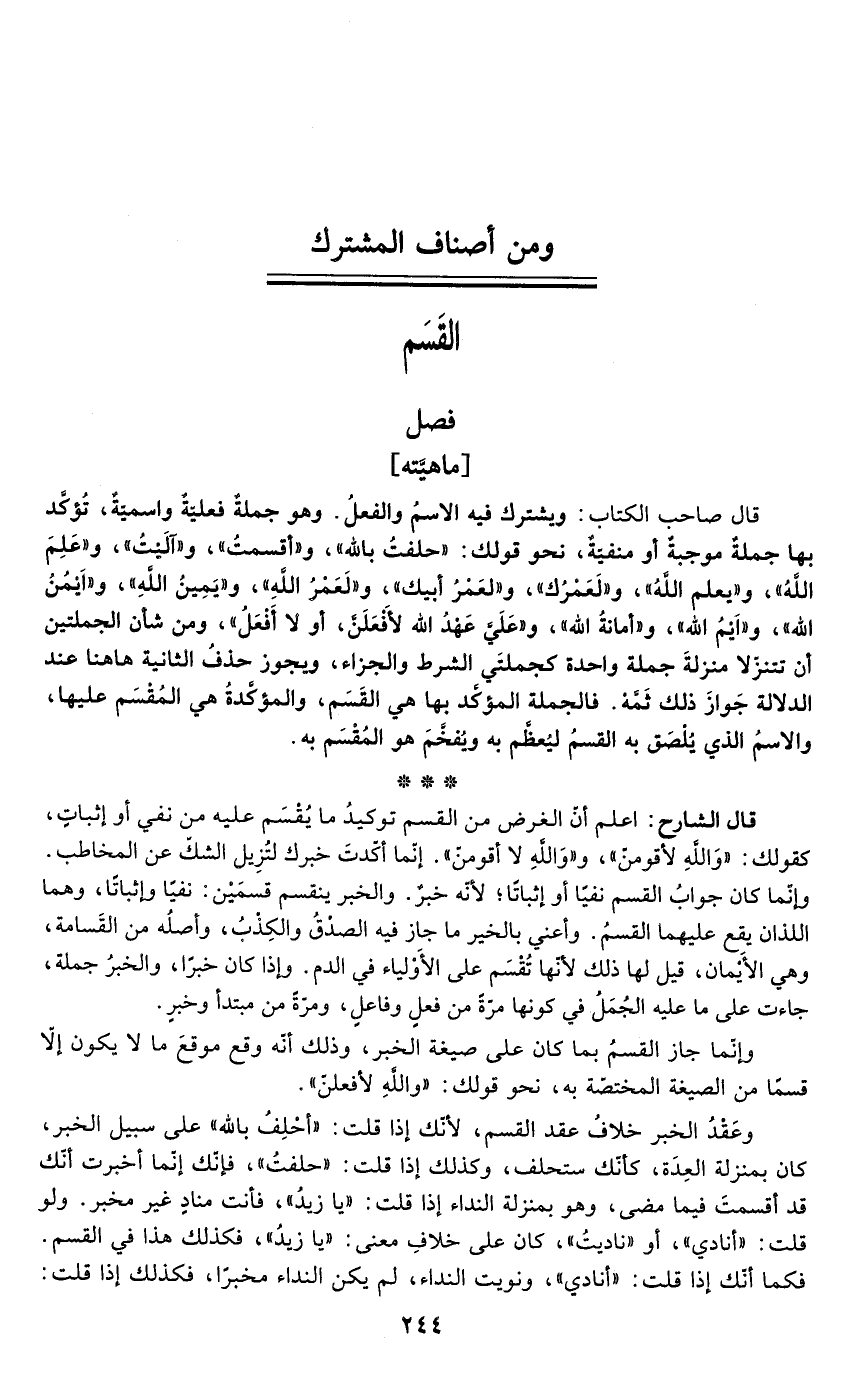 ومن أصناف المشترك
القَسَم
فصل
[ماهيَّته]
قال صاحب الكتاب: ويشترك فيه الاسمُ والفعلُ. وهو جملةٌ فعليّةٌ واسميّةٌ، تُؤكَّد
بها جملةٌ موجبةٌ أو منفيّةٌ، نحو قولك: «حلفتُ بالله»، و«أقسمتُ»، و«آلَيْتُ»، و«عَلِمَ
اللَّهُ»، و«يعلم اللَّهُ»، و«لَعَمْرُك»، و«لَعَمْرُ أبيك»، و«لَعَمْرُ اللَّهِ»، و«يَمِينُ اللَّهِ»، و«اَيْمُنُ
الله»، و«اَيْمُ الله»، و«أمانةُ الله»، و«عَلَيَّ عَهْدُ الله لأفْعَلَنَّ، أو لا أَفْعَلُ»، ومن شأن الجملتين
أن تتنزّلا منزلةَ جملة واحدة كجملتَي الشرط والجزاء، ويجوز حذفُ الثانية هاهنا عند
الدلالة جَوازَ ذلك ثَمَّهْ. فالجملة المؤكَّد بها هي القَسَم، والمؤكَّدةُ هي المُقْسَم عليها،
والاسمُ الذي يُلْصَق به القسمُ ليُعظَّم به ويُفخَّمَ هو المُقْسَم به.
* * *
قال الشارح: اعلم أنّ الغرض من القسم توكيدُ ما يُقْسَم عليه من نفي أو إثباتٍ،
كقولك: «وَاللَّهِ لأقومنّ»، و«وَاللَّهِ لا أقومنّ». إنّما أكّدتَ خبرك لتُزِيل الشكّ عن المخاطب.
وإنّما كان جوابُ القسم نفيًا أو إثباتًا؛ لأنّه خبرٌ. والخبر ينقسم قسمَيْن: نفيًا وإثباتًا، وهما
اللذان يقع عليهما القسمُ. وأعني بالخير ما جاز فيه الصدْقُ والكِذْبُ، وأصلُه من القَسامة،
وهي الأَيْمان، قيل لها ذلك لأنّها تُقْسَم على الأَوْلياء في الدم. وإذا كان خبرًا، والخبرُ جملة،
جاءت على ما عليه الجُمَلُ في كونها مرّةً من فعلٍ وفاعلٍ، ومرّةً من مبتدأ وخبرٍ.
وإنّما جاز القسمُ بما كان على صيغة الخبر، وذلك أنّه وقع موقعَ ما لا يكون إلّا
قسمًا من الصيغة المختصّة به، نحو قولك: «واللَّهِ لأفعلنّ».
وعَقْدُ الخبر خلافُ عقد القسم، لأنّك إذا قلت: «أحْلِفُ بالله» على سبيل الخبر،
كان بمنزلة العِدَة، كأنّك ستحلف، وكذلك إذا قلت: «حلفتُ»، فإنّك إنّما أخبرت أنّك
قد أقسمتَ فيما مضى، وهو بمنزلة النداء إذا قلت: «يا زيدُ»، فأنت منادٍ غير مخبر. ولو
قلت: «أنادي»، أو «ناديتُ»، كان على خلافِ معنى: «يا زيدُ»، فكذلك هذا في القسم.
فكما أنّك إذا قلت: «أنادي»، ونويت النداء، لم يكن النداء مخبرًا، فكذلك إذا قلت:
٢٤٤